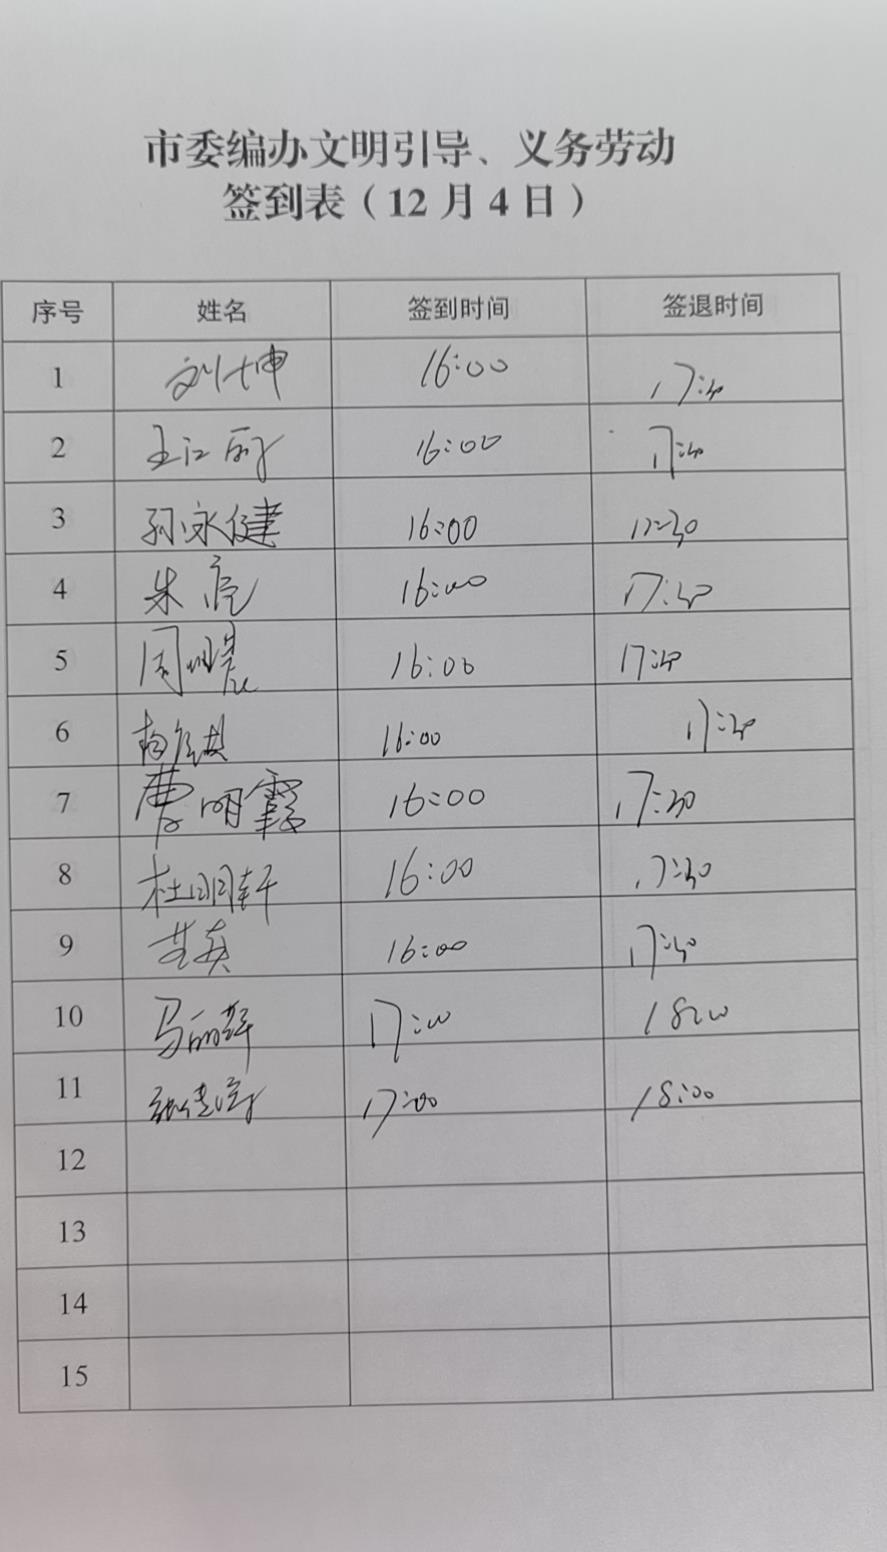 市委编办文明引导、义务劳动
签到表（12 月 4 日）
序号 姓名 签到时间 签退时间
1 刘士坤 16:00 17:30
2 王江丽 16:00 17:30
3 孙永健 16:00 17:30
4 朱亮 16:00 17:30
5 周 16:00 17:30
6 16:00 17:30
7 曹明霞 16:00 17:30
8 杜明轩 16:00 17:30
9 英 16:00 17:30
10 马丽 17:00 18:00
11 17:00 18:00
12
13
14
15